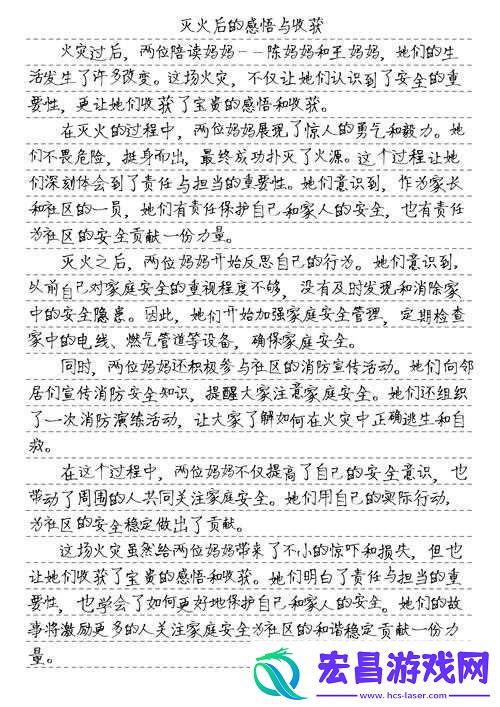 灭火后的感悟与收获
火灾过后，两位陪读妈妈--陈妈妈和王妈妈，她们的生
活发生了许多改变。这场火灾，不仅让她们认识到了安全的重
要性，更让她们收获了宝贵的感悟和收获。
在灭火的过程中，两位妈妈展现了惊人的勇气和毅力。她
们不畏危险，挺身而出，最终成功扑灭了火源。这个过程让她
们深刻体会到了责任与担当的重要性。她们意识到，作为家长
和社区的一员，她们有责任保护自己和家人的安全，也有责任
为社区的安全贡献一份力量。
灭火之后，两位妈妈开始反思自己的行为。她们意识到，
以前自己对家庭安全的重视程度不够，没有及时发现和消除家
中的安全隐患。因此，她们开始加强家庭安全管理，定期检查
家中的电线、燃气管道等设备，确保家庭安全。
同时，两位妈妈还积极参与社区的消防宣传活动。她们向邻
居们宣传消防安全知识，提醒大家注意家庭安全。她们还组织
了一次消防演练活动，让大家了解如何在火灾中正确逃生和自
救。
在这个过程中，两位妈妈不仅提高了自己的安全意识，也
带动了周围的人共同关注家庭安全。她们用自己的实际行动，
为社区的安全稳定做出了贡献。
这场火灾虽然给两位妈妈带来了不小的惊吓和损失，但也
让她们收获了宝贵的感悟和收获。她们明白了责任与担当的重
要性，也学会了如何更好地保护自己和家人的安全。她们的故
事将激励更多的人关注家庭安全为社区的和谐稳定贡献一份力
量。
宏昌游戏网
www.hcs-laser.com